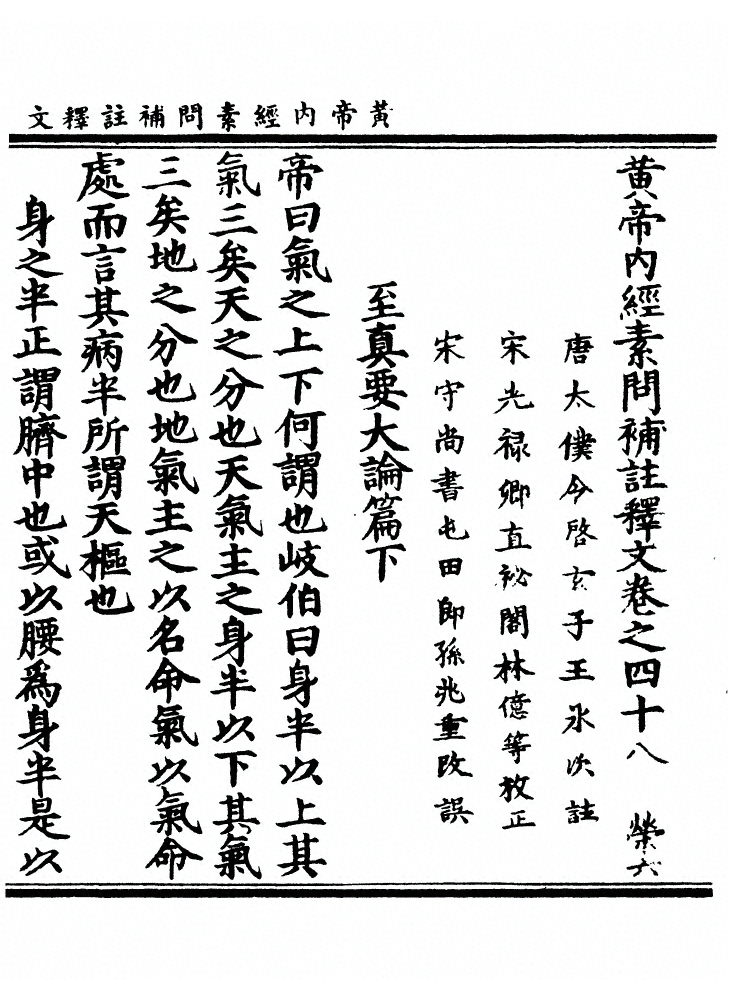 黃帝內經素問補註釋文
黃帝內經素問補註釋文卷之四十八 榮六
唐太僕令啓玄子王氷次註
宋光祿卿直祕閣林億等校正
宋守尚書屯田郎孫兆重改誤
至真要大論篇下
帝曰氣之上下何謂也岐伯曰身半以上其
氣三矣天之分也天氣主之身半以下其氣
三矣地之分也地氣主之以名命氣以氣命
處而言其病半所謂天樞也
身之半正謂臍中也或以腰爲身半是以